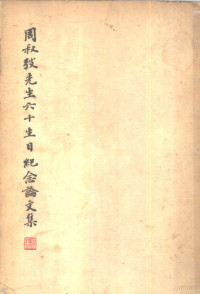 周叔弢先生六十生日紀念論文集